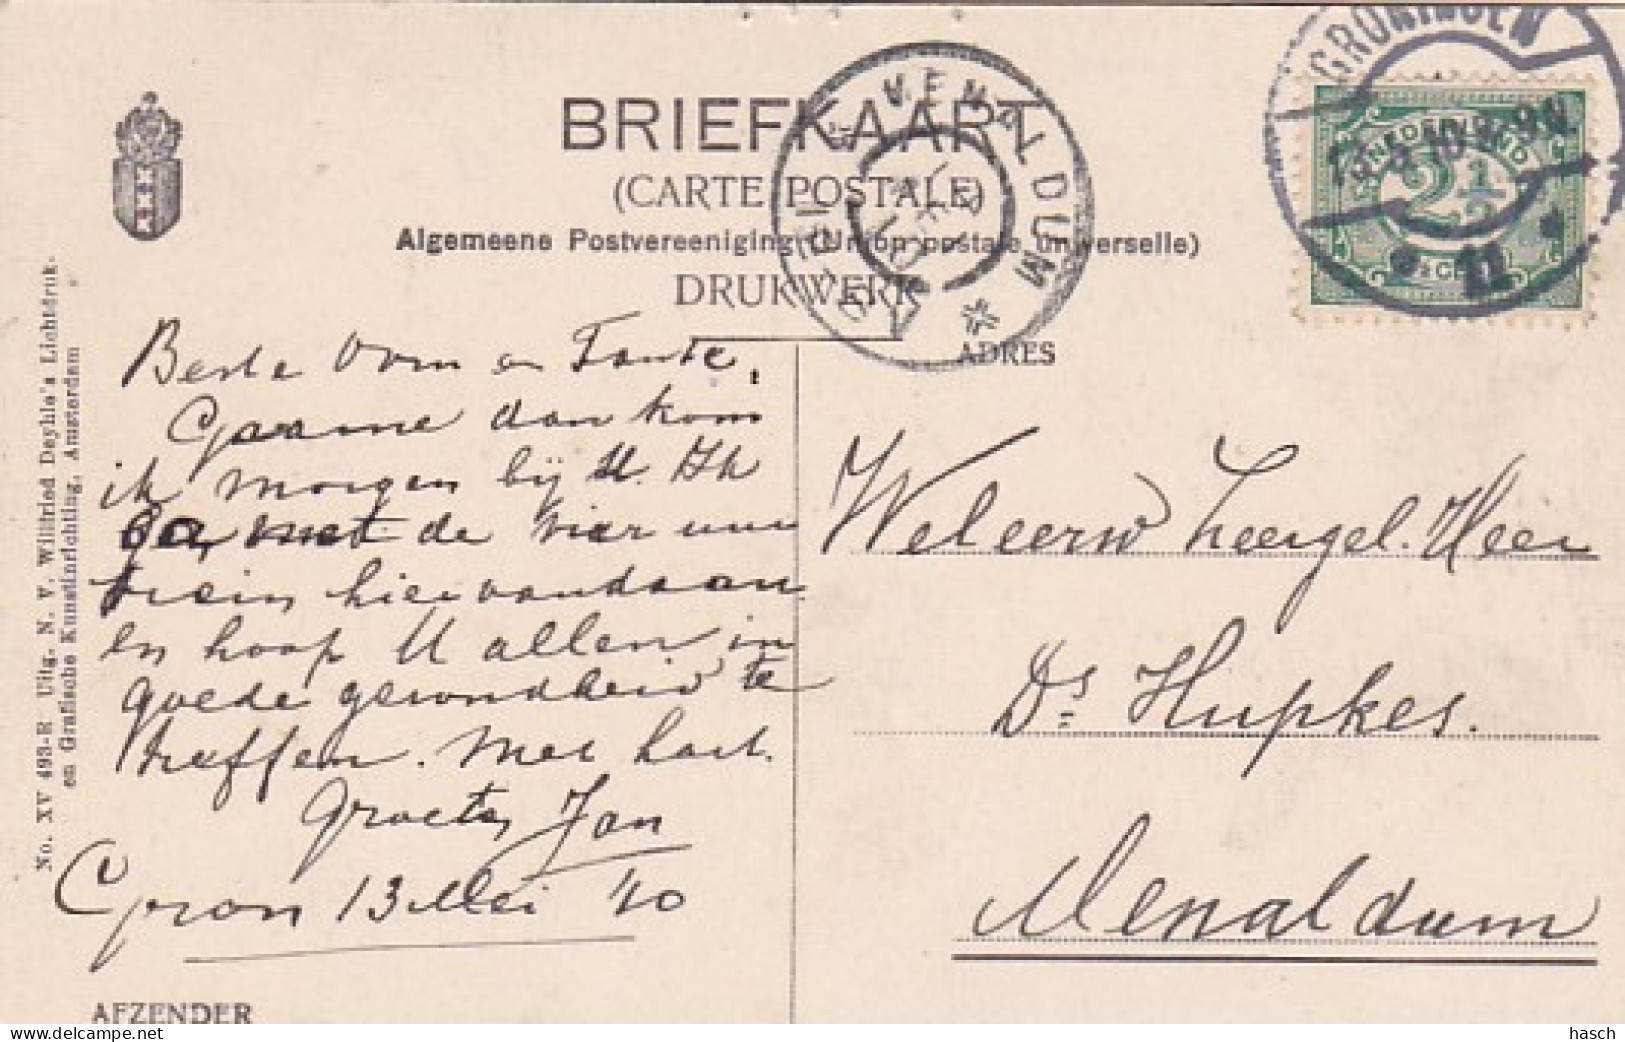 BRIEFKAART
(CARTE POSTALE)
Algemeene Postvereeniging (Union postale universelle)
DRUKWERK
ADRES
GRONINGEN
NEDERLAND
2½
MENALDUM
No. XV 493-R Uitg. N. V. Wilfried Deyhle's Lichtdruk-
en Grafische Kunstinrichting, Amsterdam
Beste Oom en Tante,
Gaarne dan kom
ik morgen bij U. Ik
ga met de vier uur
trein hier vandaan
en hoop U allen in
goede gezondheid te
treffen. Met hart.
Groeten Jan
Gron 13 Mei '10
AFZENDER
Weleerw Zeergel. Heer
Ds Hupkes.
Menaldum
hasch